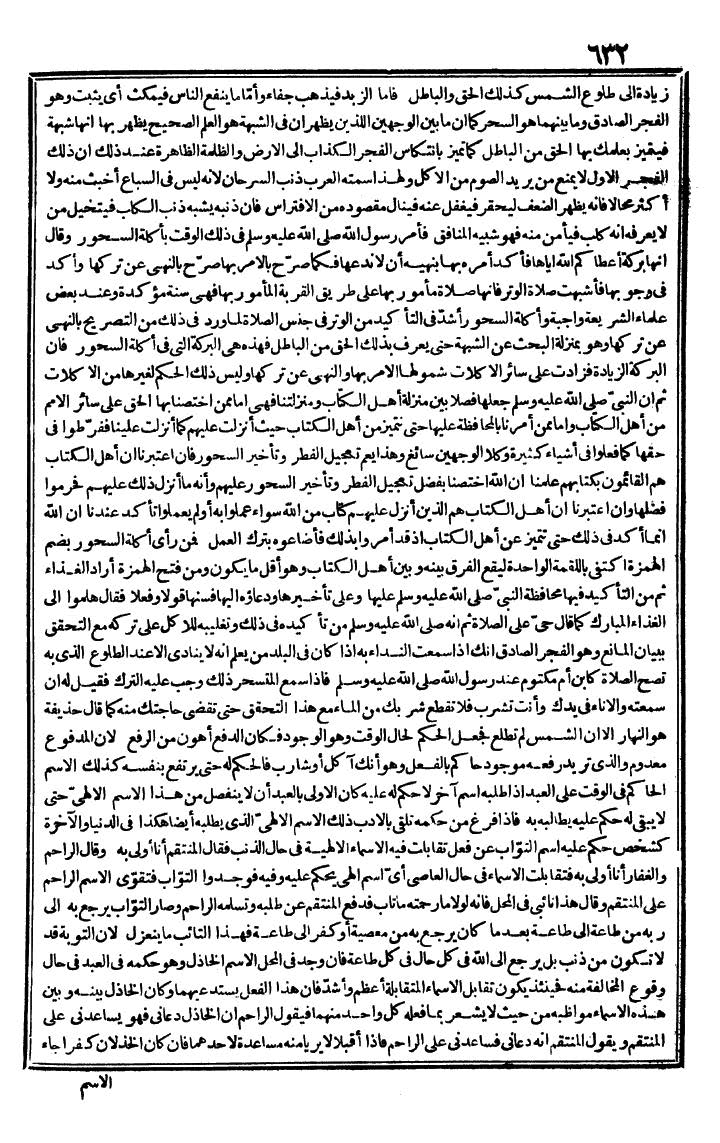 ٦٣٢
زيادة الى طلوع الشمس كذلك الحق والباطل فاما الزبد فيذهب جفاء وأمّا ما ينفع الناس فيمكث أى يثبت وهو
الفجر الصادق وما بينهما هو السحر كما ان ما بين الوجهين اللذين يظهران فى الشبهة هو العلم الصحيح يظهر بها انها شبهة
فيتميز بعلمك بها الحق من الباطل كما تميز بانتكاس الفجر الكذاب الى الارض والظلمة الظاهرة عند ذلك ان ذلك
الفجر الاول لا يمنع من يريد الصوم من الاكل ولهذا سمته العرب ذنب السرحان لانه ليس فى السباع أخبث منه ولا
أكثر محالا فانه يظهر الضعف ليحقر فيغفل عنه فينال مقصوده من الافتراس فان ذنبه يشبه ذنب الكلب فيتخيل من
لا يعرفه انه كلب فيأمن منه فهو شبيه المنافق فأمر رسول الله صلى الله عليه وسلم فى ذلك الوقت بأكلة السحور وقال
انها بركة أعطاكم الله اياها فأكد أمره بها بنهيه أن لا ندعها فكما صرّح بالامر بها صرّح بالنهى عن تركها وأكد
فى وجوبها فأشبهت صلاة الوتر فانها صلاة مأمور بها على طريق القربة المأمور بها فهى سنة مؤكدة وعند بعض
علماء الشريعة واجبة وأكلة السحور أشدّ فى التأكيد من الوتر فى جنس الصلاة لما ورد فى ذلك من التصريح بالنهى
عن تركها وهو بمنزلة البحث عن الشبهة حتى يعرف بذلك الحق من الباطل فهذه هى البركة التى فى أكلة السحور فان
البركة الزيادة فزادت على سائر الاكلات شمولها الامر بها والنهى عن تركها وليس ذلك الحكم لغيرها من الاكلات
ثم ان النبىّ صلى الله عليه وسلم جعلها فصلا بين منزلة أهل الكتاب ومنزلتنا فهى اما ممن اختصنا بها الحق على سائر الامم
من أهل الكتاب واما ممن أمرنا بالمحافظة عليها حتى نتميز من أهل الكتاب حيث أنزلت عليهم كما أنزلت علينا ففرّطوا فى
حقها كما فعلوا فى أشياء كثيرة وكلا الوجهين سائغ وهذا يعم تعجيل الفطر وتأخير السحور فان اعتبرنا ان أهل الكتاب
هم القائمون بكتابهم علمنا ان الله اختصنا بفضل تعجيل الفطر وتأخير السحور عليهم وأنه ما أنزل ذلك عليهم فحرموا
فضلها وان اعتبرنا ان أهل الكتاب هم الذين أنزل عليهم كتاب من الله سواء عملوا به أو لم يعملوا تأكد عندنا ان الله
انما أكد فى ذلك حتى نتميز عن أهل الكتاب اذ قد أمروا بذلك فأضاعوه بترك العمل فمن رأى أكلة السحور بضم
الهمزة اكتفى باللقمة الواحدة ليقع الفرق بينه وبين أهل الكتاب وهو أقل ما يكون ومن فتح الهمزة أراد الغداء
ثم من التأكيد فيها محافظة النبىّ صلى الله عليه وسلم عليها وعلى تأخيرها ودعاؤه اليها فسنها قولا وفعلا فقال هلموا الى
الغذاء المبارك كما قال حىّ على الصلاة ثم انه صلى الله عليه وسلم من تأكيده فى ذلك وتغليبه للاكل على تركه مع التحقق
ببيان المانع وهو الفجر الصادق انك اذا سمعت النداء به اذا كان فى البلد من يعلم انه لا ينادى الا عند الطلوع الذى به
تصح الصلاة كابن أم مكتوم عند رسول الله صلى الله عليه وسلم فاذا سمع المتسحر ذلك وجب عليه الترك فقيل له ان
سمعته والاناء فى يدك وأنت تشرب فلا تقطع شربك من الماء مع هذا التحقق حتى تقضى حاجتك منه كما قال حذيفة
هو النهار الا ان الشمس لم تطلع فجعل الحكم لحال الوقت وهو الوجود فكان الدفع أهون من الرفع لان المدفوع
معدوم والذى تريد رفعه موجود حاكم بالفعل وهو أنك آكل أو شارب فالحكم له حتى يرتفع بنفسه كذلك الاسم
الحاكم فى الوقت على العبد اذا طلبه اسم آخر لا حكم له عليه كان الاولى بالعبد أن لا ينفصل من هذا الاسم الالهىّ حتى
لا يبقى له حكم عليه يطالبه به فاذا فرغ من حكمه تلقى بالادب ذلك الاسم الالهىّ الذى يطلبه أيضا هكذا فى الدنيا والآخرة
كشخص حكم عليه اسم التوّاب عن فعل تقابلت فيه الاسماء الالهية فى حال الذنب فقال المنتقم أنا أولى به وقال الراحم
والغفار أنا أولى به فتقابلت الاسماء فى حال العاصى أىّ اسم الهى يحكم عليه وفيه فوجدوا التوّاب فتقوّى الاسم الراحم
على المنتقم وقال هذا نائبى فى المحل فانه لولا رحمته ما تاب فدفع المنتقم عن طلبه وتسلمه الراحم وصار التوّاب يرجع به الى
ربه من طاعة الى طاعة بعدما كان يرجع به من معصية أو كفر الى طاعة فهذا التائب ما ينعزل لان التوبة قد
لا تكون من ذنب بل يرجع الى الله فى كل حال فى كل طاعة فان وجد فى المحل الاسم الخاذل وهو حكمه فى العبد فى حال
وقوع المخالفة منه فحينئذ يكون تقابل الاسماء المتقابلة أعظم وأشدّ فان هذا الفعل يستدعيهما وكان الخاذل بينه وبين
هذه الاسماء مواظبه من حيث لا يشعر بما فعله كل واحد منهما فيقول الراحم ان الخاذل دعانى فهو يساعدنى على
المنتقم ويقول المنتقم انه دعانى فساعدنى على الراحم فاذا أقبلا لا يريا منه مساعدة لاحدهما فان كان الخذلان كفرا جاء
الاسم